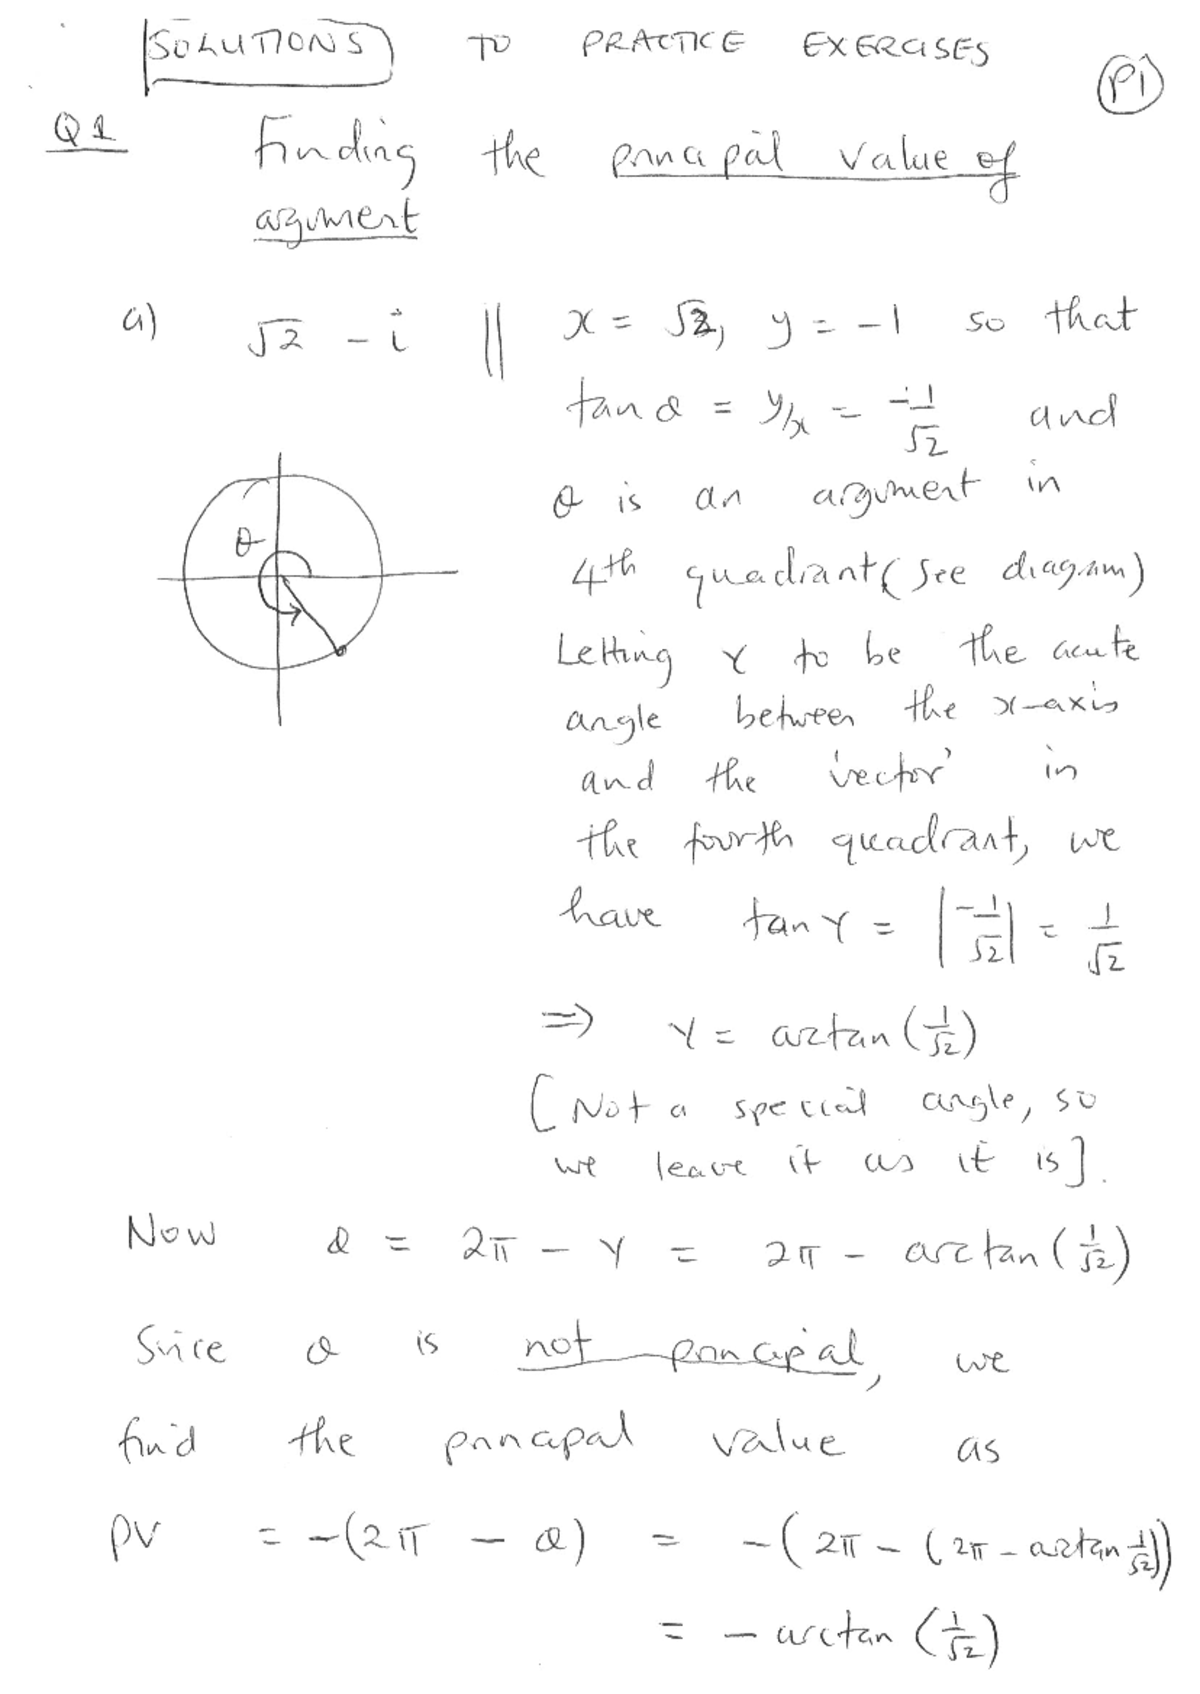 SOLUTIONS TO PRACTICE EXERCISES
P1
Q1 Finding the principal value of
argument
a) √2 - i || x = √2, y = -1 so that
tan θ = y/x = -1/√2 and
θ is an argument in
4th quadrant (see diagram)
θ
Letting γ to be the acute
angle between the x-axis
and the 'vector' in
the fourth quadrant, we
have tan γ = |-1/√2| = 1/√2
⇒ γ = arctan (1/√2)
[Not a special angle, so
we leave it as it is].
Now θ = 2π - γ = 2π - arctan (1/√2)
Since θ is not principal, we
find the principal value as
PV = -(2π - θ) = -(2π - (2π - arctan 1/√2))
= - arctan (1/√2)